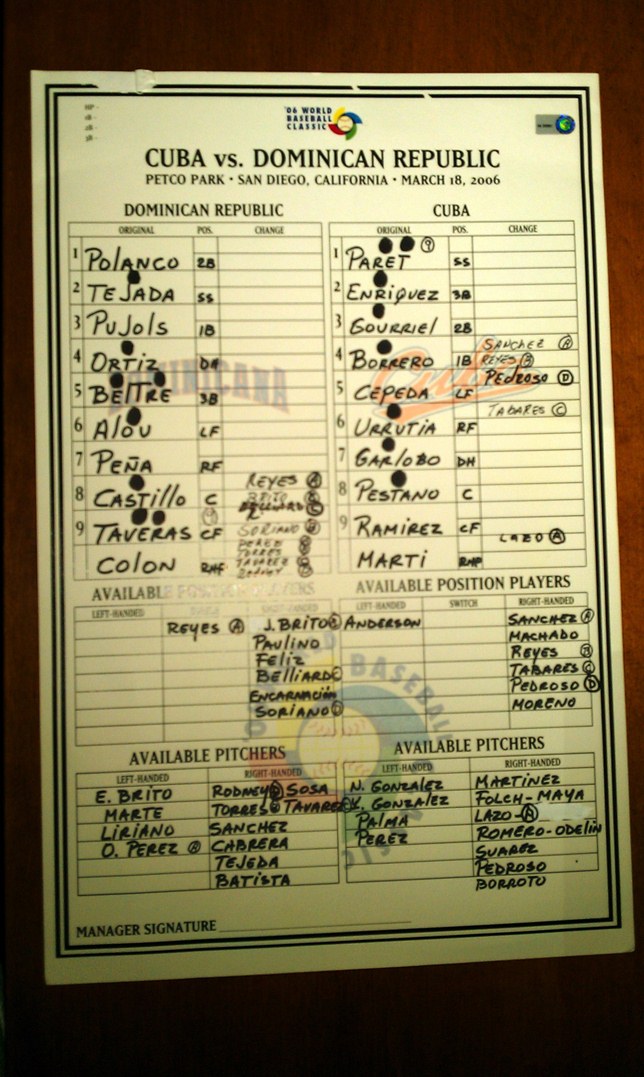 '06 WORLD
BASEBALL
CLASSIC
CUBA vs. DOMINICAN REPUBLIC
PETCO PARK • SAN DIEGO, CALIFORNIA • MARCH 18, 2006
DOMINICAN REPUBLIC
ORIGINAL POS. CHANGE
1 POLANCO 2B
2 TEJADA SS
3 PUJOLS 1B
4 ORTIZ DH
5 BELTRE 3B
6 ALOU LF
7 PEÑA RF
8 CASTILLO C REYES A
BRITO
BELLIARD C
9 TAVERAS CF SORIANO D
PEREZ
TORRES
TAVAREZ
RODNEY
COLON RHP
CUBA
ORIGINAL POS. CHANGE
1 PARET 9 SS
2 ENRIQUEZ 3B
3 GOURRIEL 2B
4 BORRERO 1B SANCHEZ A
REYES B
PEDROSO D
5 CEPEDA LF
TABARES C
6 URRUTIA RF
7 GARLOBO DH
8 PESTANO C
9 RAMIREZ CF
LAZO A
MARTI RHP
AVAILABLE POSITION PLAYERS
LEFT-HANDED RIGHT-HANDED
REYES A J. BRITO
PAULINO
FELIZ
BELLIARD C
ENCARNACIÓN
SORIANO D
AVAILABLE POSITION PLAYERS
LEFT-HANDED SWITCH RIGHT-HANDED
ANDERSON SANCHEZ A
MACHADO
REYES B
TABARES C
PEDROSO D
MORENO
AVAILABLE PITCHERS
LEFT-HANDED RIGHT-HANDED
E. BRITO RODNEY SOSA
MARTE TORRES TAVAREZ
LIRIANO SANCHEZ
O. PEREZ A CABRERA
TEJEDA
BATISTA
AVAILABLE PITCHERS
LEFT-HANDED RIGHT-HANDED
N. GONZALEZ MARTINEZ
Y. GONZALEZ FOLCH-MAYA
PALMA LAZO-A
PEREZ ROMERO-ODELIN
SUAREZ
PEDROSO
BORROTO
MANAGER SIGNATURE